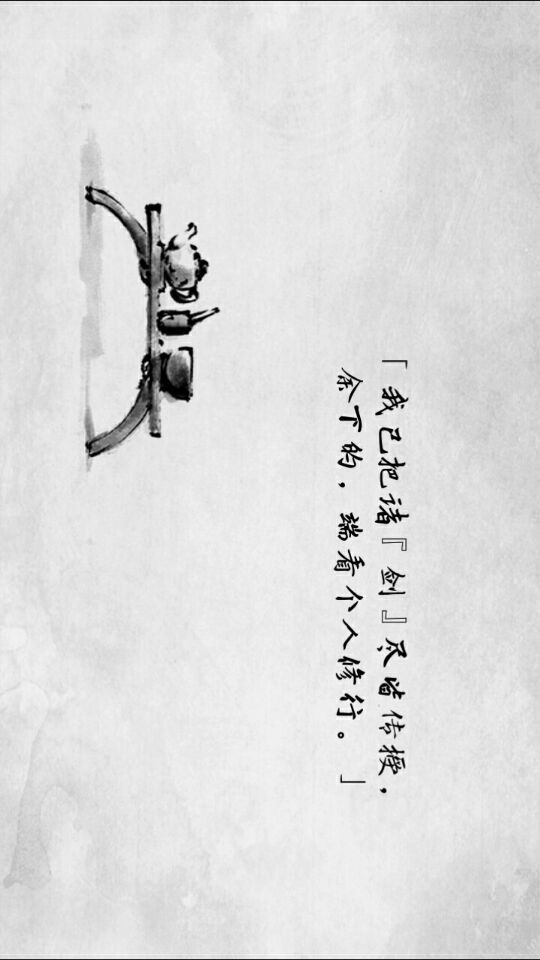 「我已把诸『剑』尽皆传授，
余下的，端看个人修行。」